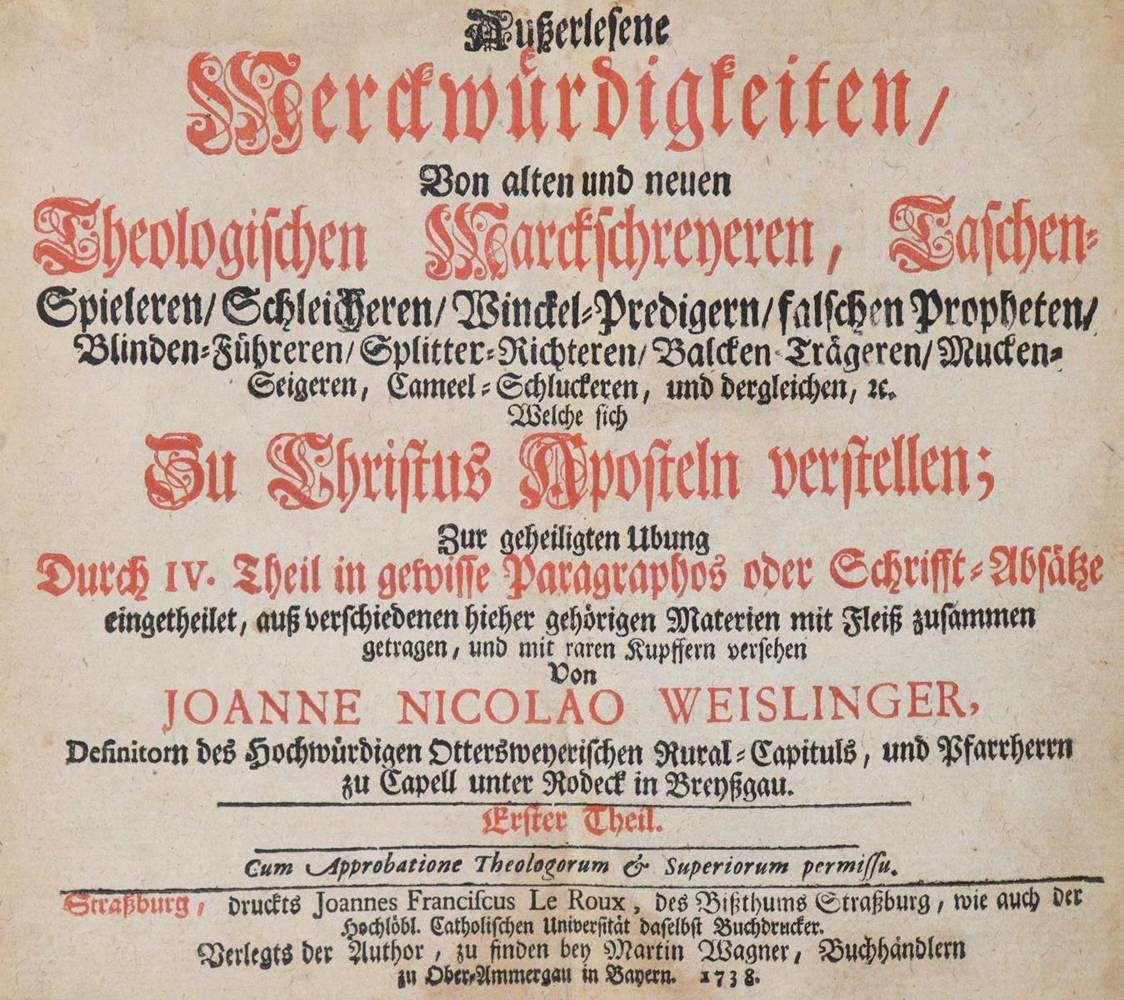 Außerlesene
Merckwürdigkeiten/
Von alten und neuen
Theologischen Marckschreyeren, Taschen-
Spieleren/ Schleicheren/ Winckel-Predigern/ falschen Propheten/
Blinden-Führeren/ Splitter-Richteren/ Balcken-Trägeren/ Mucken-
Seigeren, Cameel-Schluckeren, und dergleichen, ꝛc.
Welche sich
Zu Christus Aposteln verstellen;
Zur geheiligten Ubung
Durch IV. Theil in gewisse Paragraphos oder Schrifft-Absätze
eingetheilet, auß verschiedenen hieher gehörigen Materien mit Fleiß zusammen
getragen, und mit raren Kupffern versehen
Von
JOANNE NICOLAO WEISLINGER,
Definitorn des Hochwürdigen Ottersweyerischen Rural-Capituls, und Pfarrherrn
zu Capell unter Rodeck in Breyßgau.
Erster Theil.
Cum Approbatione Theologorum & Superiorum permissu.
Straßburg, druckts Joannes Franciscus Le Roux, des Bißthums Straßburg, wie auch der
Hochlöbl. Catholischen Universität daselbst Buchdrucker.
Verlegts der Author, zu finden bey Martin Wagner, Buchhändlern
zu Ober-Ammergau in Bayern. 1738.